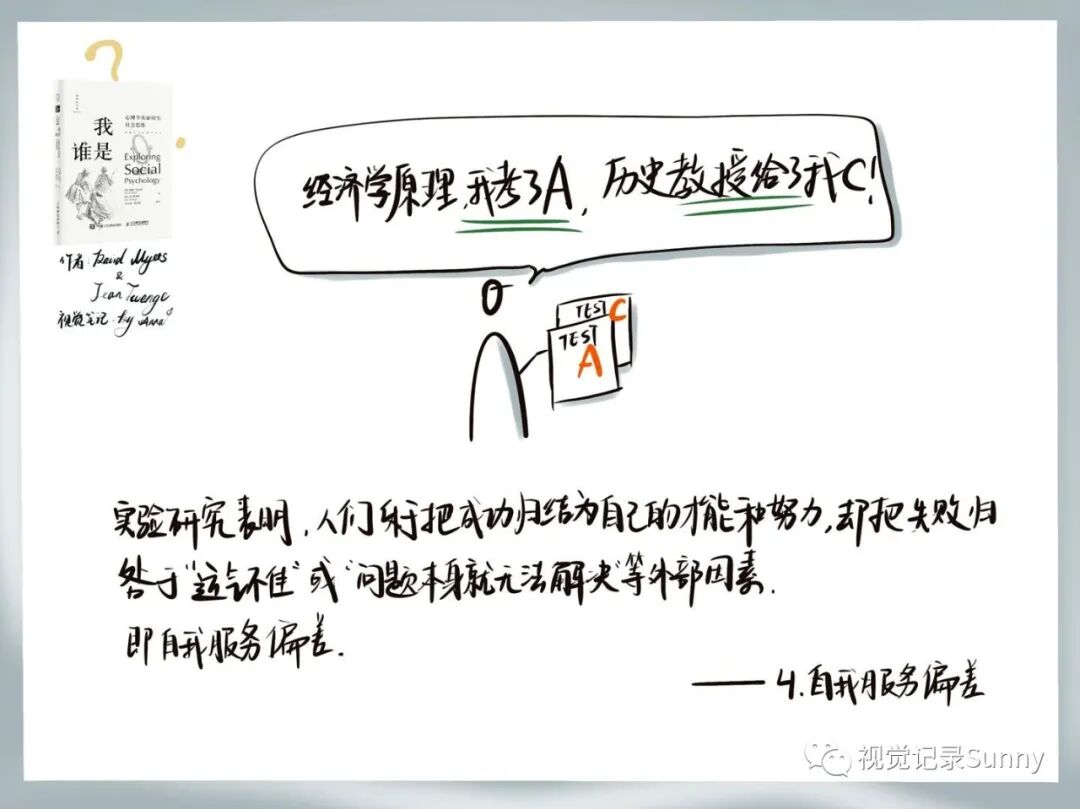 ?
我
谁是
心理学真面目和
社会思维
Exploring
Social
Psychology
作者: David Myers
&
Jean Twenge
视觉笔记: by Anna
经济学原理,我考了A, 历史教授给了我C!
TEST C
TEST
A
实验研究表明,人们乐于把成功归结为自己的才能和努力,却把失败归
咎于“运气不佳”或“问题本身就无法解决”等外部因素.
即自我服务偏差.
—— 4.自我服务偏差
视觉记录Sunny